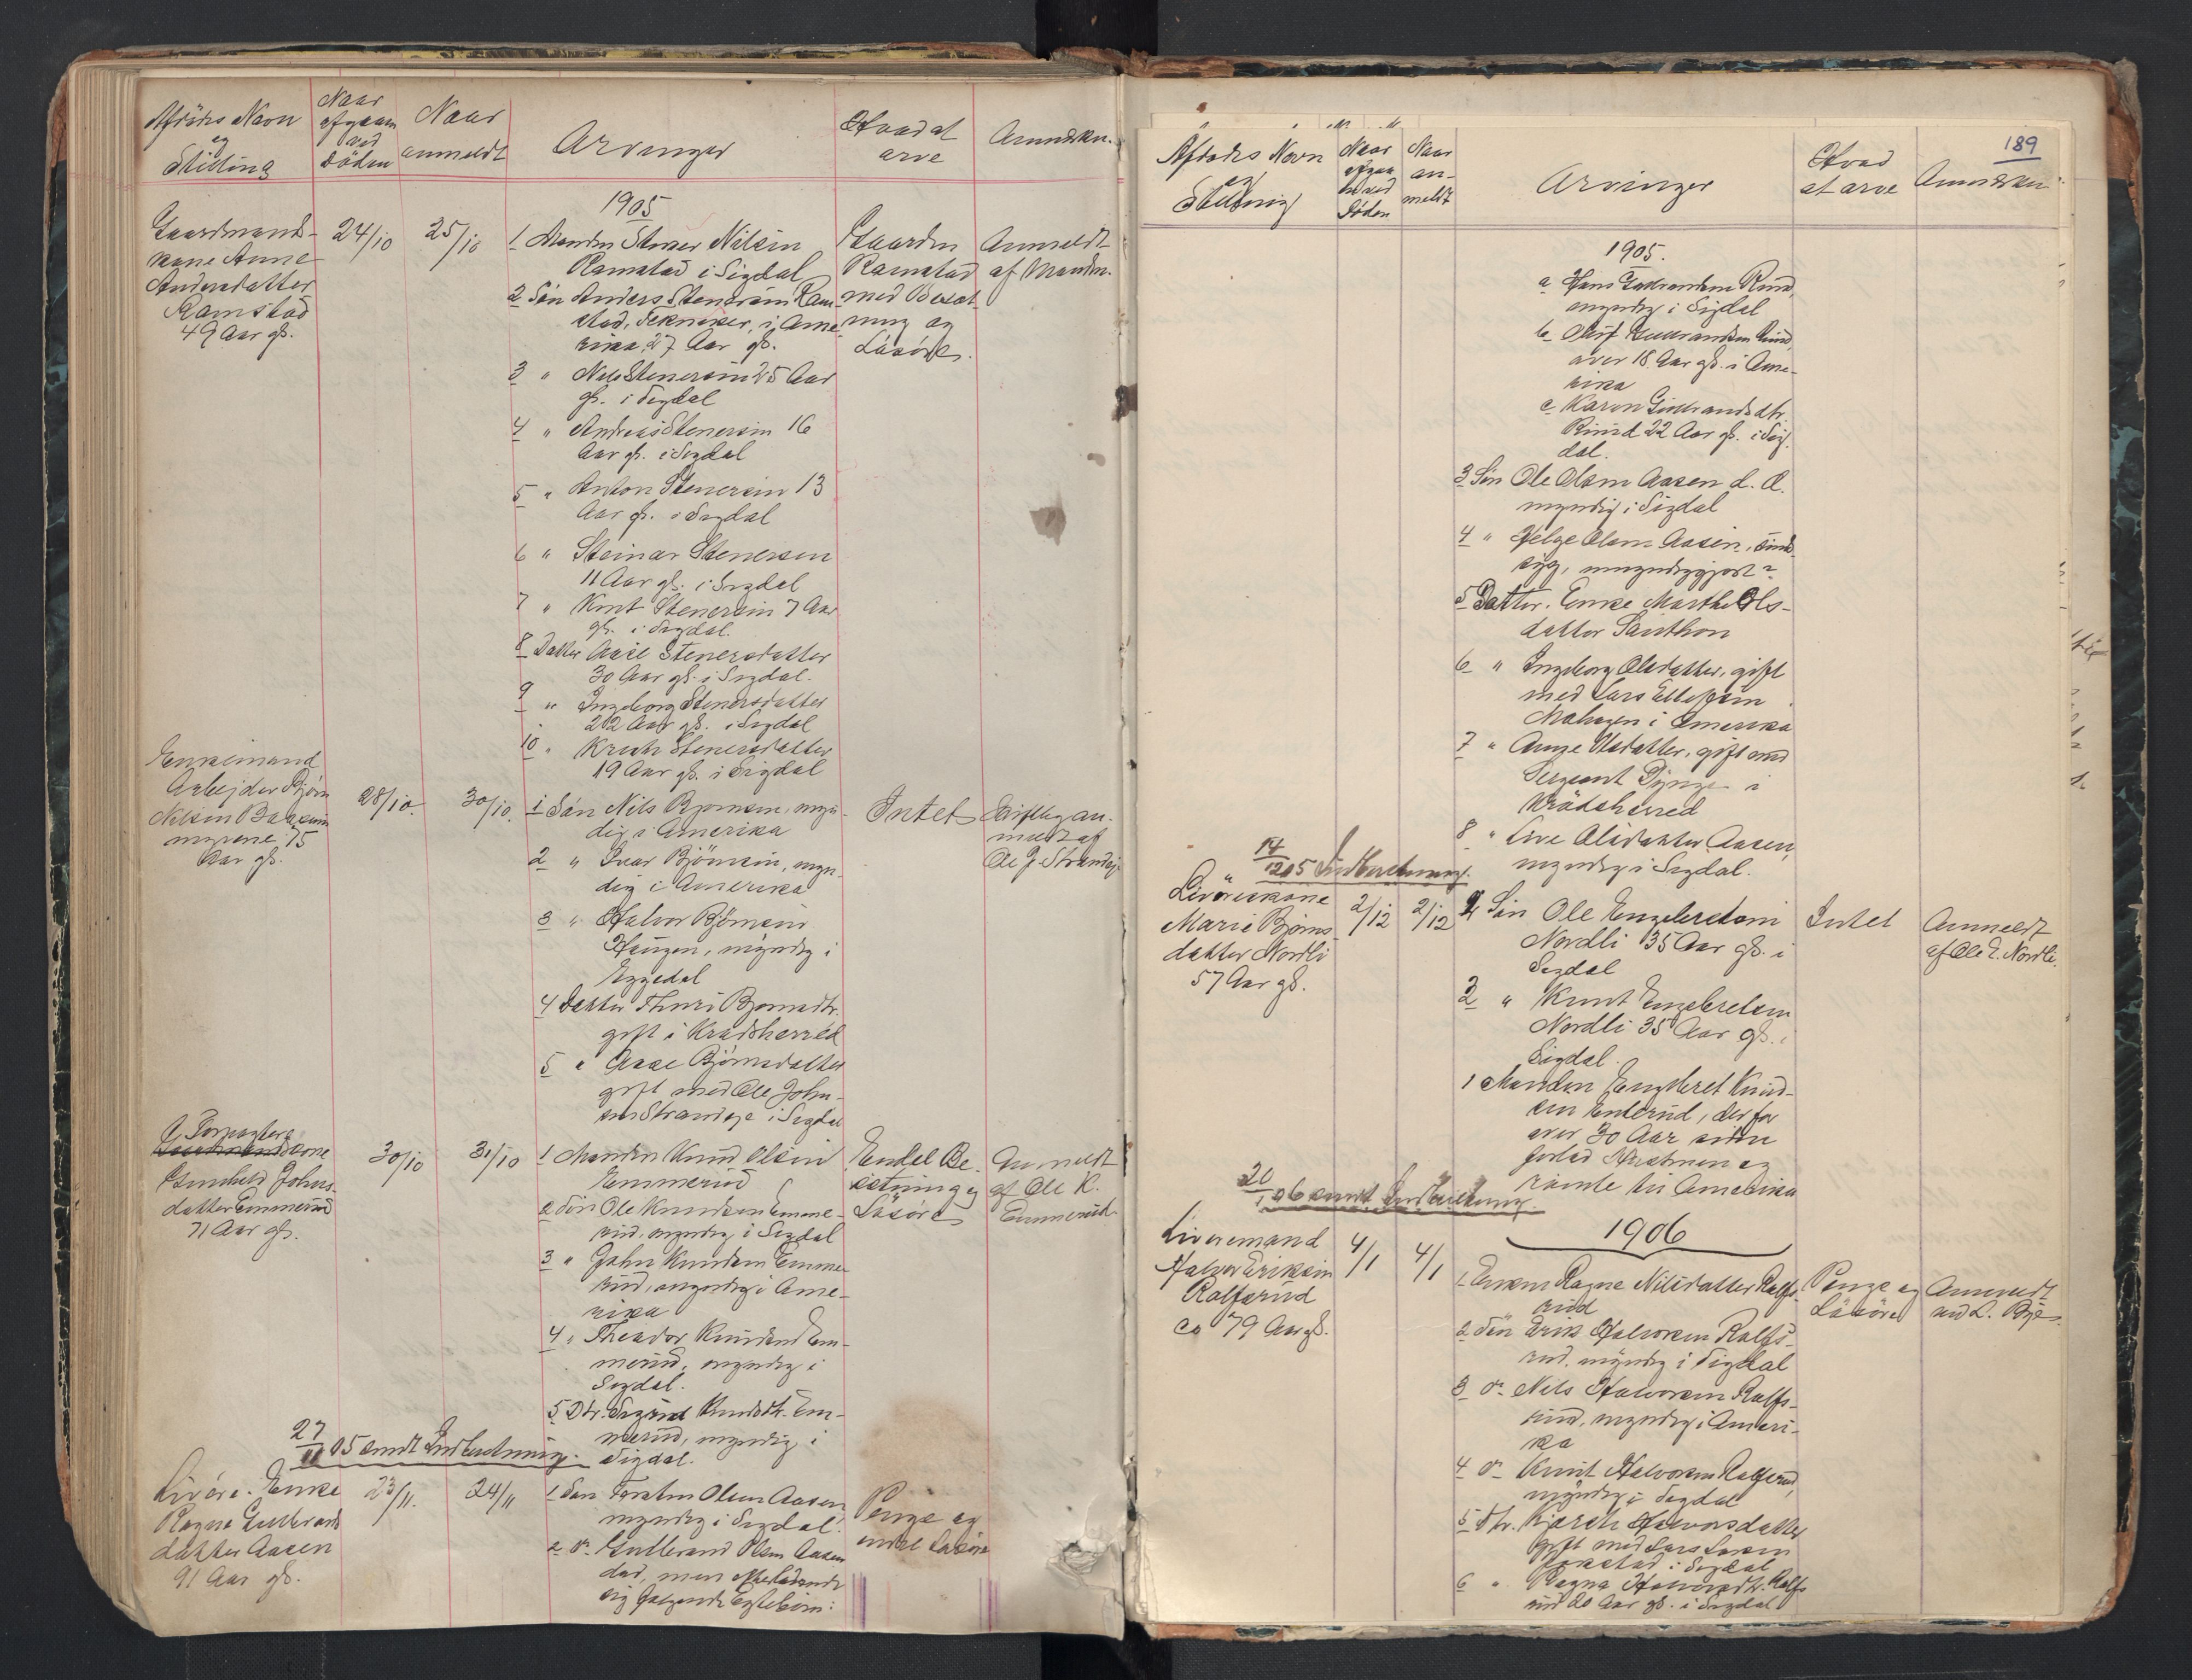 Afdødes Navn
og
Stilling
Naar
afgaaen
ved
Døden
Naar
anmeldt
Arvinger
Hvad at
arve
Anmærkn.
1905
Gaardmands-
kone Anne
Andersdatter
Ramstad
49 Aar gl.
24/10
25/10
1 Manden Stener Nilsen
Ramstad i Sigdal
2 Søn Anders Stenersen Ram-
stad, Tekniker, i Ame-
rika, 27 Aar gl.
3 " Nils Stenersen 25 Aar
gl. i Sigdal
4 " Andreas Stenersen 16
Aar gl. i Sigdal
5 " Anton Stenersen 13
Aar gl. i Sigdal
6 " Steinar Stenersen
11 Aar gl. i Sigdal
7 " Knut Stenersen 7 Aar
gl. i Sigdal.
8 Datter Aase Stenersdatter
30 Aar gl. i Sigdal.
9 " Ingeborg Stenersdatter
22 Aar gl. i Sigdal
10 " Kristi Stenersdatter
19 Aar gl. i Sigdal
Gaarden
Ramstad
med Besæt
ning og
Løsøre.
Anmeldt
af Manden.
Enkemand
Arbejder Bjørn
Nilsen
75
Aar gl.
28/10.
30/10.
1 Søn Nils Bjørnsen, myn-
dig i Amerika
2 " Ivar Bjørnsen, myn-
dig i Amerika
3 " Halvor Bjørnsen
Haugen, myndig i
Eggedal
4 Datter Thuri Bjørnsdtr.
gift i Krødsherred
5 " Aase Bjørnsdatter
gift med Ole John-
sen Strandeje i Sigdal
Intet
Skriftlig an-
meldt af
Ole J. Strandeje
Forpagter
kone
Gunhild Johns-
datter Emmerud
71 Aar gl.
30/10
31/10
1 Manden Knud Olsen
Emmerud
2 Søn Ole Knudsen Emme-
rud, myndig i Sigdal
3 " John Knudsen Emme-
rud, myndig i Ame-
rika
4 " Theodor Knudsen Em-
merud, myndig i
Sigdal.
5 Dtr. Sigrid Knudsdtr. Em-
merud, myndig i
Sigdal.
Endel Be-
sætning og
Løsøre
Anmeldt
af Ole K.
Emmerud.
27/11 05 sendt Indberetning.
Livøre. Enke
Ragne Gulbrands
datter Aasen
91 Aar gl.
23/11.
24/11
1 Søn Torsten Olsen Aasen
myndig i Sigdal.
2 Do. Gulbrand Olsen Aasen
død, men efterladende
sig følgende Ægtebørn:
Penge og
endel Løsøre
189
Afdødes Navn
og
Stilling
Naar
afgaa
en ved
Døden
Naar
an-
meldt
Arvinger
Hvad
at arve
Anmærkn.
1905.
a Hans Gulbrandsen Rud,
myndig i Sigdal
b Oluf Gulbrandsen Rud,
over 18 Aar gl. i Ame-
rika
c Karen Gulbrandsdtr.
Ruud 22 Aar gl. i Sig-
dal.
3 Søn Ole Olsen Aasen d. Æ.
myndig i Sigdal
4 " Helge Olsen Aasen, sinds-
syg, umyndiggjort?
5 Datter. Enke Marthe Ols-
datter Santhon
6 " Ingeborg Olsdatter, gift
med Lars Ellefsen
i Amerika
7 " Anne Olsdatter, gift med
Sergeant i
Krødsherred
8 " Live Olsdatter Aasen,
myndig i Sigdal.
14/12 05 Indberetning.
Livøreskone
Marie Bjørns-
datter Nordli
57 Aar gl.
2/12
2/12
2 Søn Ole Engebretsen
Nordli 35 Aar gl. i
Sigdal
3 " Knut Engebretsen
Nordli 35 Aar gl. i
Sigdal.
1 Manden Engebret Knud-
sen Enderud, der for
over 30 Aar siden
forlod Hustruen og
reiste til Amerika
Intet
Anmeldt
af Ole E. Nordli.
20/1 06 sendt Indberetning.
1906
Livøremand
Halvor Eriksen
Ralfsrud
ca 79 Aar gl.
4/1
4/1
1 Enken Ragne Nilsdatter Ralfs-
rud
2 Søn Erik Halvorsen Ralfs-
rud, myndig i Sigdal
3 Do. Nils Halvorsen Ralfs-
rud, myndig i Ameri-
ka
4 Do. Knut Halvorsen Ralfsrud,
myndig i Sigdal
5 Dtr. Kjersti Halvorsdatter
gift med Lars Larsen
i Sigdal
6 " Ragna Halvorsdtr. Ralfs
rud 20 Aar gl. i Sigdal
Penge og
Løsøre
Anmeldt
ved L. Bye.